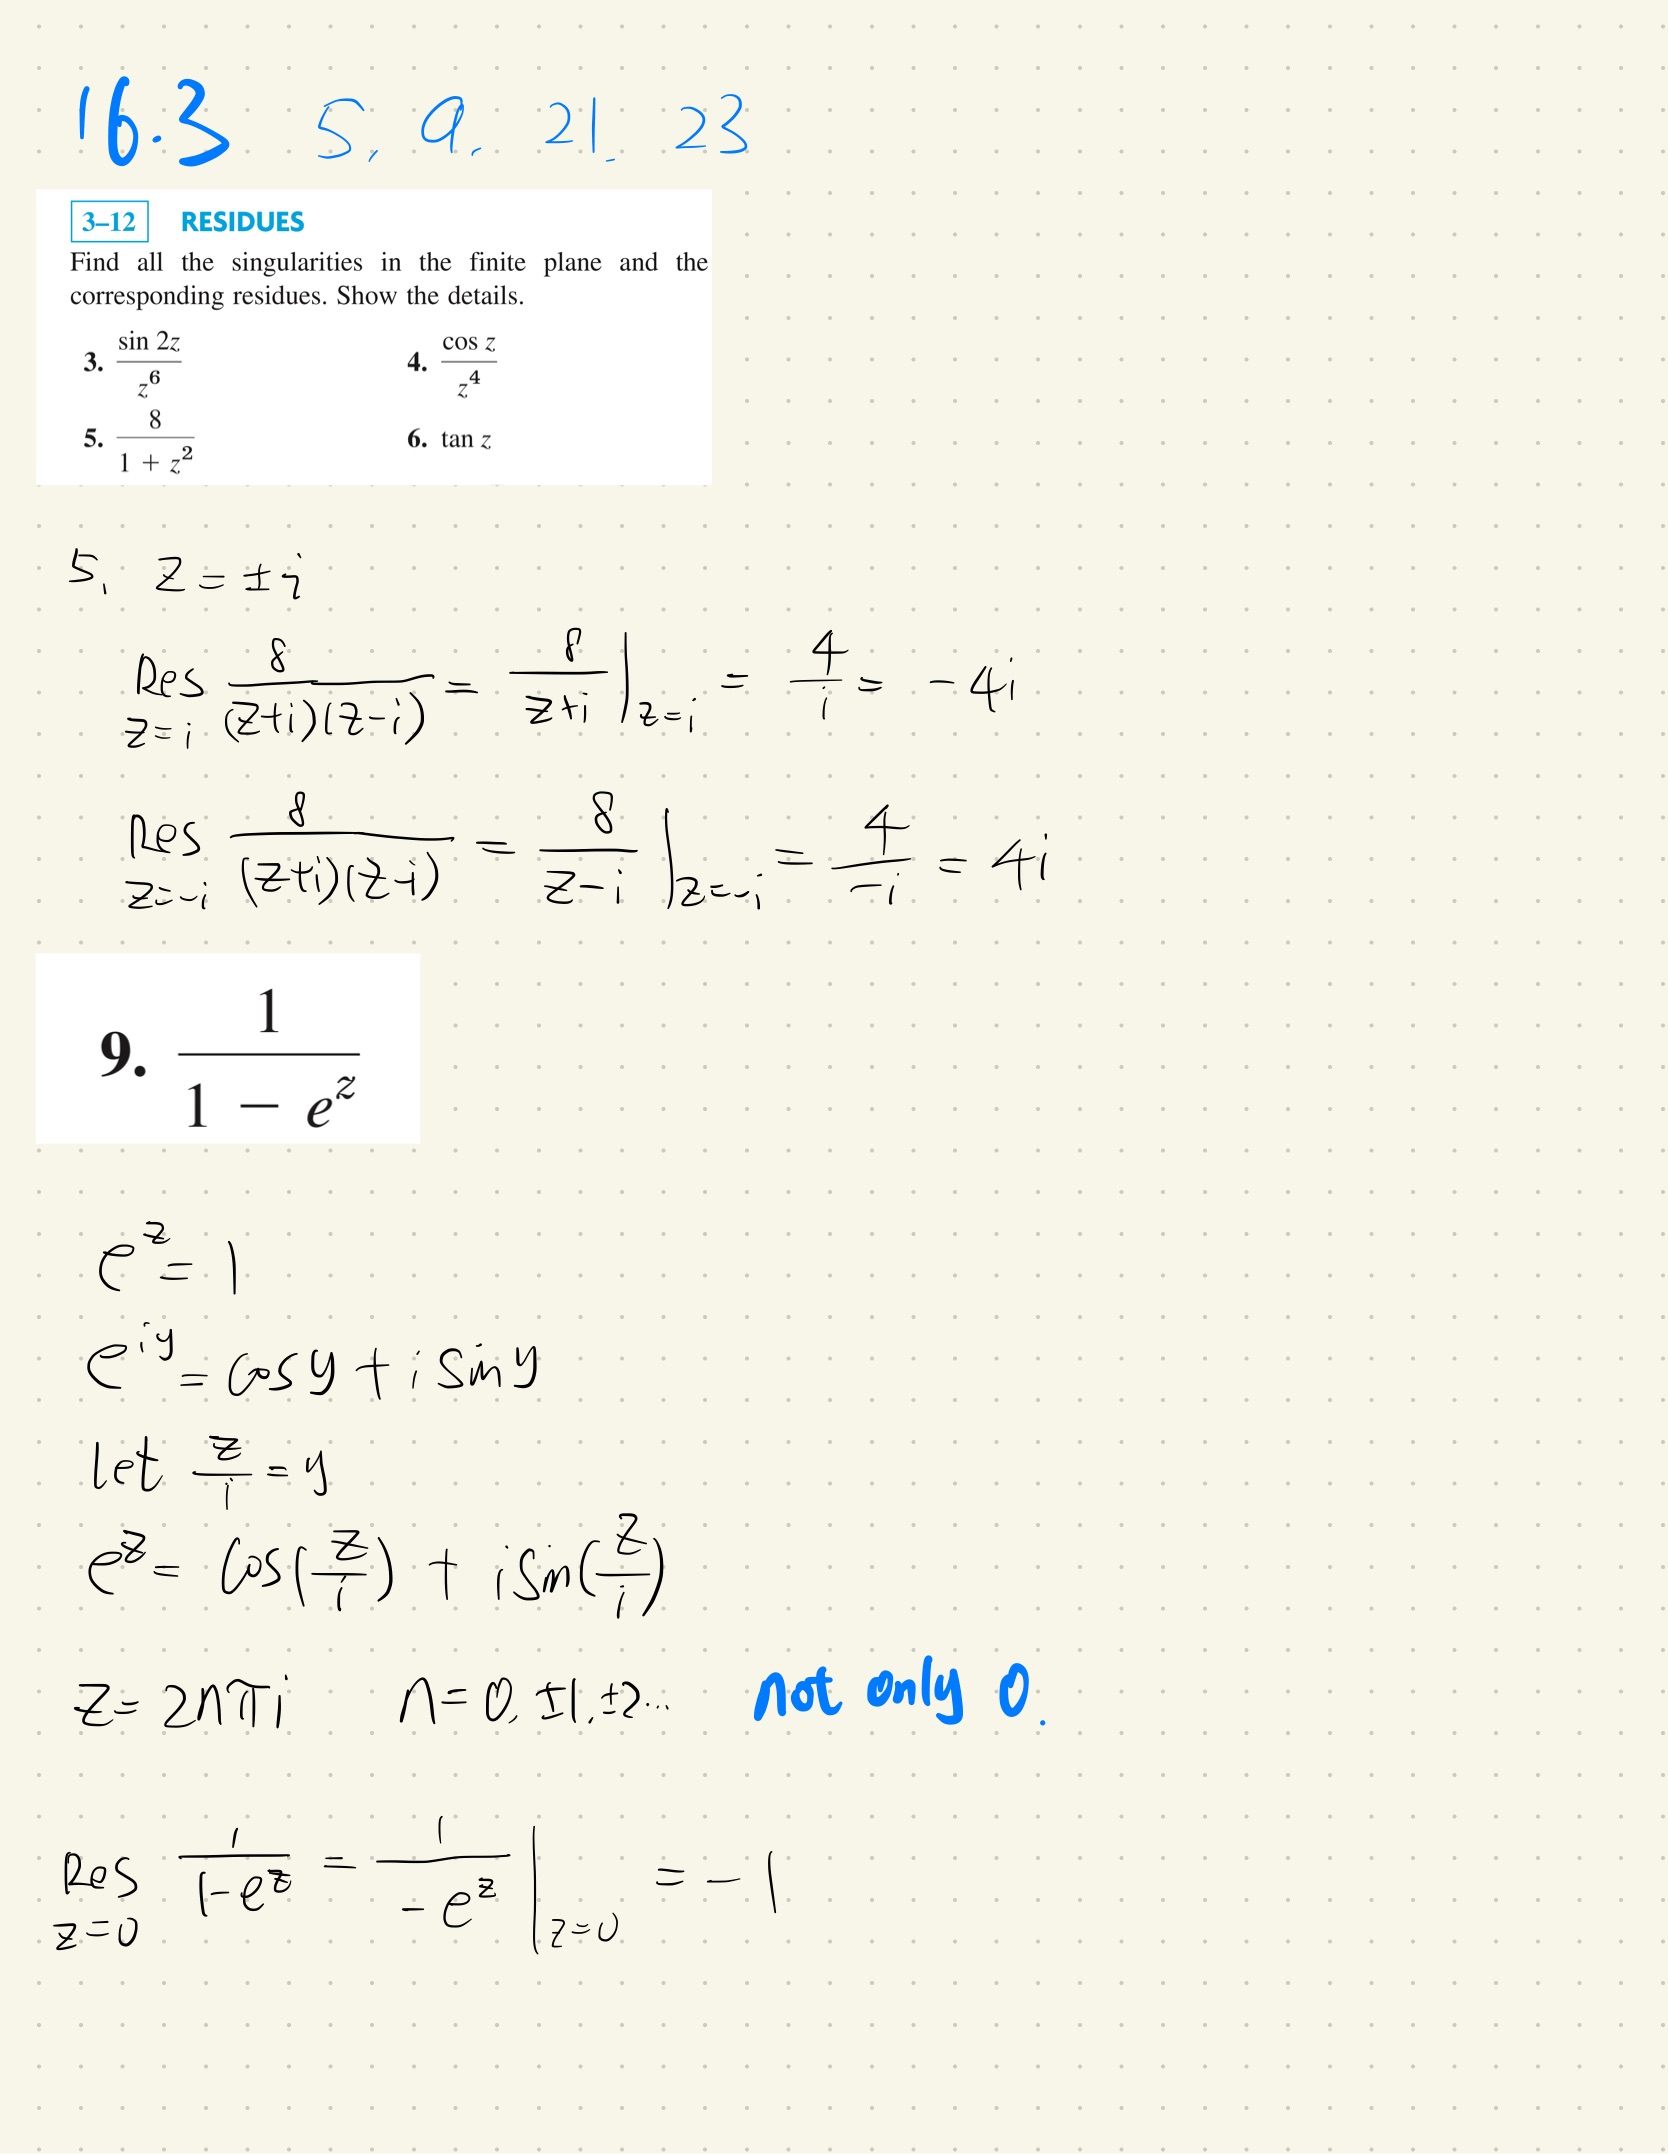 16.3 5, 9, 21, 23
3–12 RESIDUES
Find all the singularities in the finite plane and the
corresponding residues. Show the details.
3. sin 2z / z^6 4. cos z / z^4
5. 8 / (1 + z^2) 6. tan z
5, z = ±i
Res z=i 8 / (z+i)(z-i) = 8 / (z+i) | z=i = 4/i = -4i
Res z=-i 8 / (z+i)(z-i) = 8 / (z-i) | z=-i = 4/-i = 4i
9. 1 / (1 − e^z)
e^z = 1
e^iy = cos y + i sin y
let z/i = y
e^z = cos(z/i) + i sin(z/i)
z = 2nπi n = 0, ±1, ±2... not only 0.
Res z=0 1 / (1-e^z) = 1 / (-e^z) | z=0 = -1